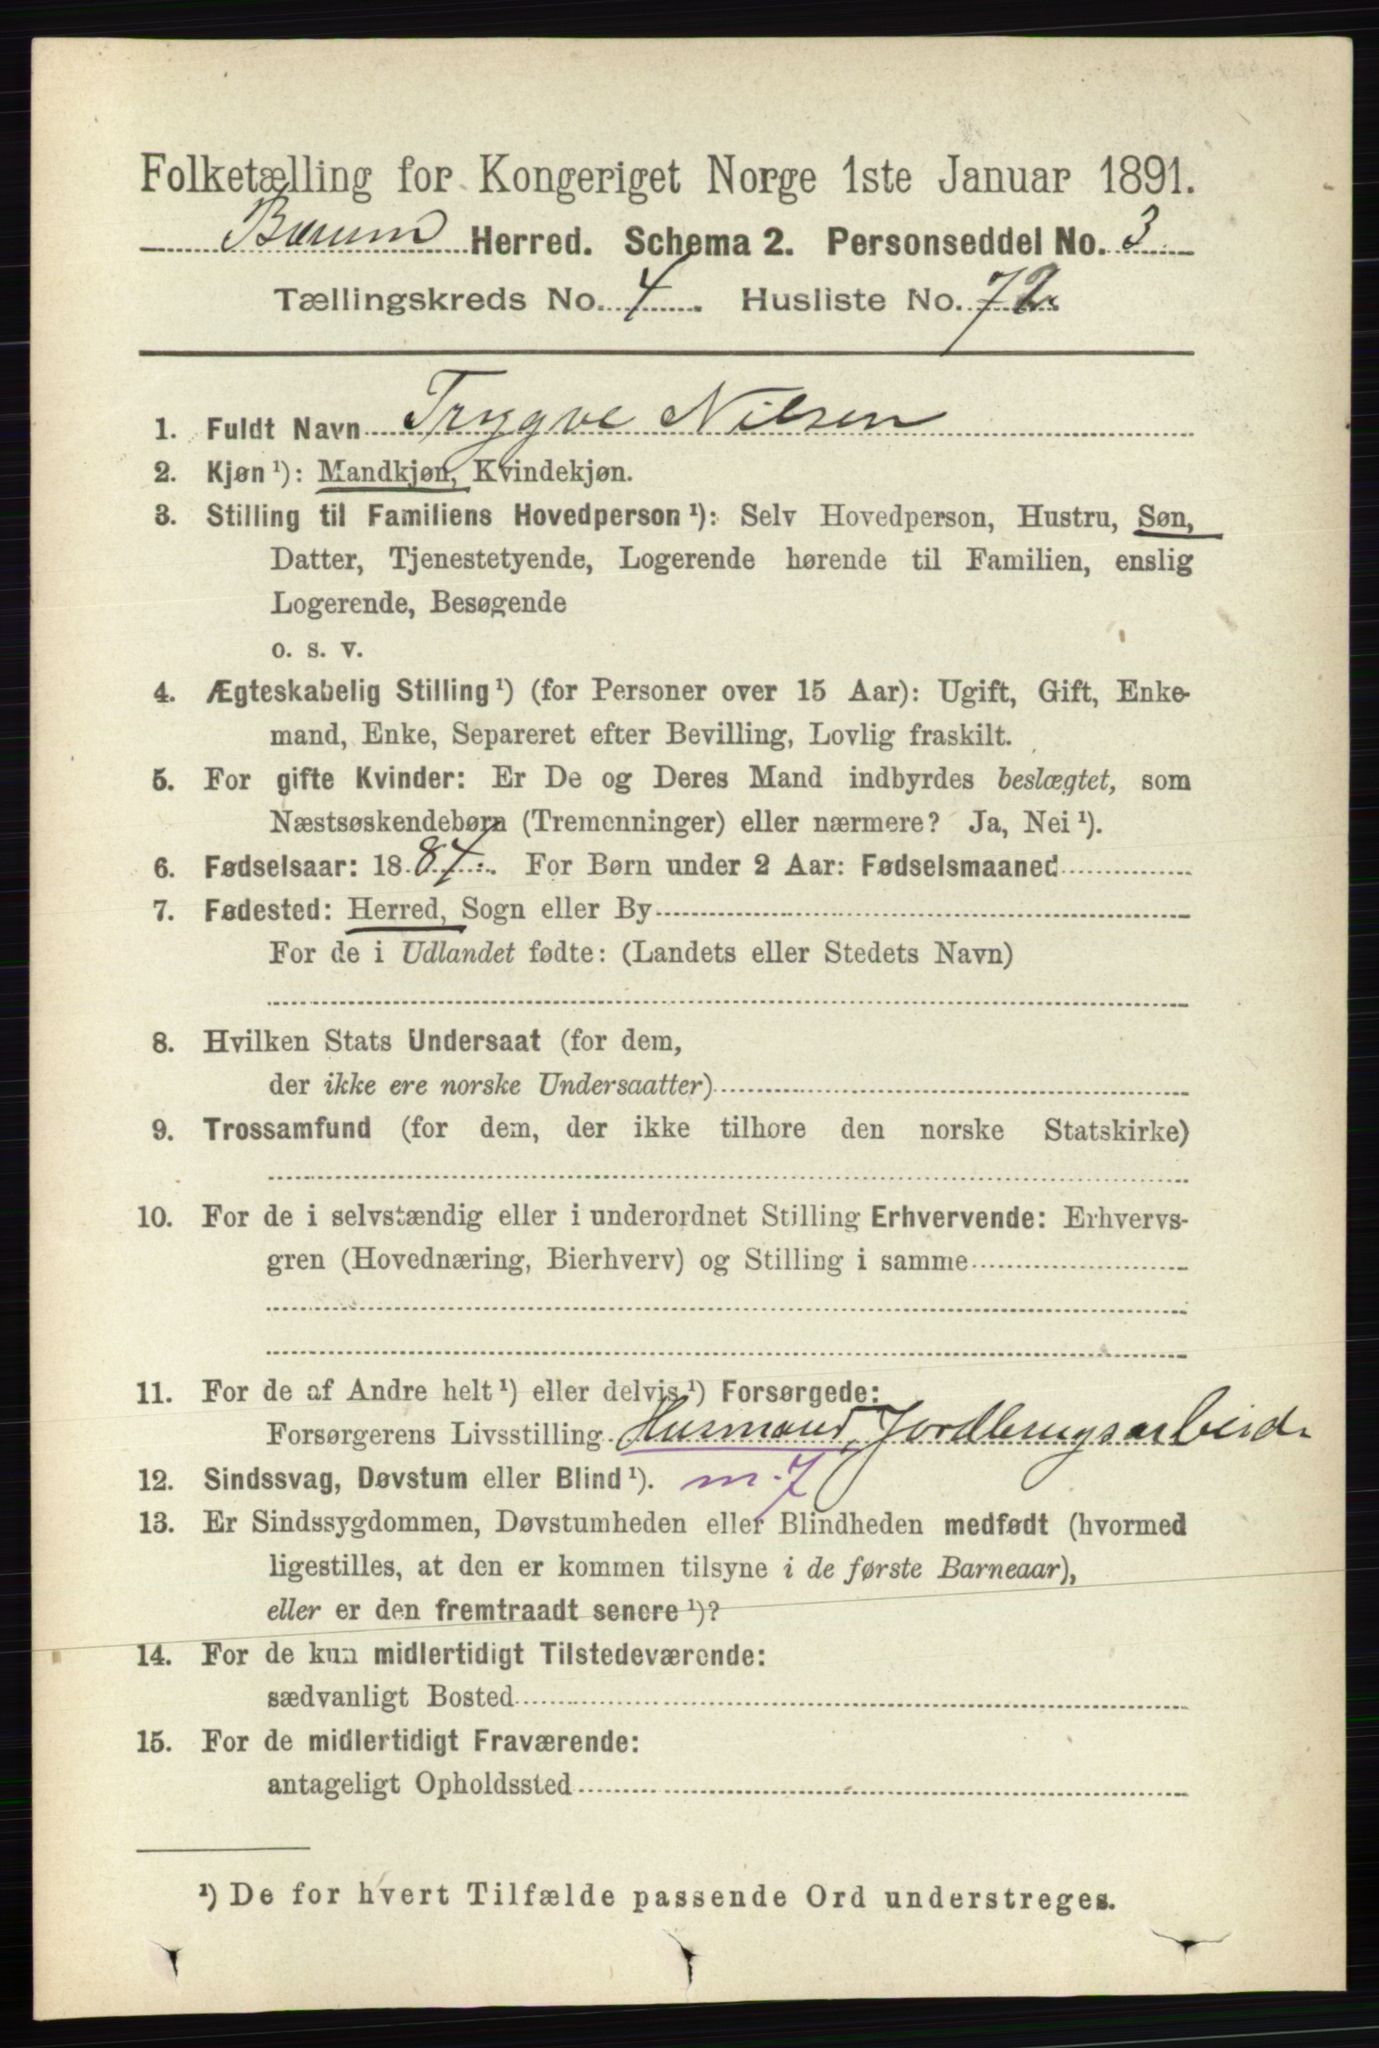 Folketælling for Kongeriget Norge 1ste Januar 1891.
Bærum Herred. Schema 2. Personseddel No. 3
Tællingskreds No. 4. Husliste No. 72.
1. Fuldt Navn Trygve Nilsen
2. Kjøn ¹): Mandkjøn, Kvindekjøn.
3. Stilling til Familiens Hovedperson ¹): Selv Hovedperson, Hustru, Søn,
Datter, Tjenestetyende, Logerende hørende til Familien, enslig
Logerende, Besøgende
o. s. v.
4. Ægteskabelig Stilling ¹) (for Personer over 15 Aar): Ugift, Gift, Enke-
mand, Enke, Separeret efter Bevilling, Lovlig fraskilt.
5. For gifte Kvinder: Er De og Deres Mand indbyrdes beslægtet, som
Næstsøskendebørn (Tremenninger) eller nærmere? Ja, Nei ¹).
6. Fødselsaar: 1884. For Børn under 2 Aar: Fødselsmaaned
7. Fødested: Herred, Sogn eller By
For de i Udlandet fødte: (Landets eller Stedets Navn)
8. Hvilken Stats Undersaat (for dem,
der ikke ere norske Undersaatter)
9. Trossamfund (for dem, der ikke tilhøre den norske Statskirke)
10. For de i selvstændig eller i underordnet Stilling Erhvervende: Erhvervs-
gren (Hovednæring, Bierhverv) og Stilling i samme
11. For de af Andre helt ¹) eller delvis ¹) Forsørgede:
Forsørgerens Livsstilling Husmand, Jordbrugsarbeid.
12. Sindssvag, Døvstum eller Blind ¹). m. 7
13. Er Sindssygdommen, Døvstumheden eller Blindheden medfødt (hvormed
ligestilles, at den er kommen tilsyne i de første Barneaar),
eller er den fremtraadt senere ¹)?
14. For de kun midlertidigt Tilstedeværende:
sædvanligt Bosted
15. For de midlertidigt Fraværende:
antageligt Opholdssted
¹) De for hvert Tilfælde passende Ord understreges.